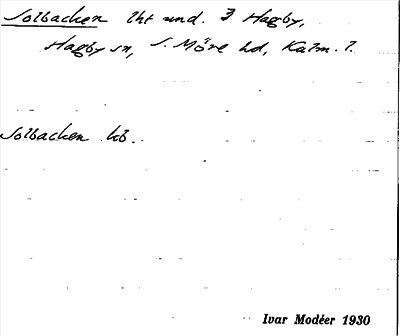 Solbacken lht und. 3 Hagby,
Hagby sn, S. Möre hd, Kalm. l.
Solbacken kb.
Ivar Modéer 1930